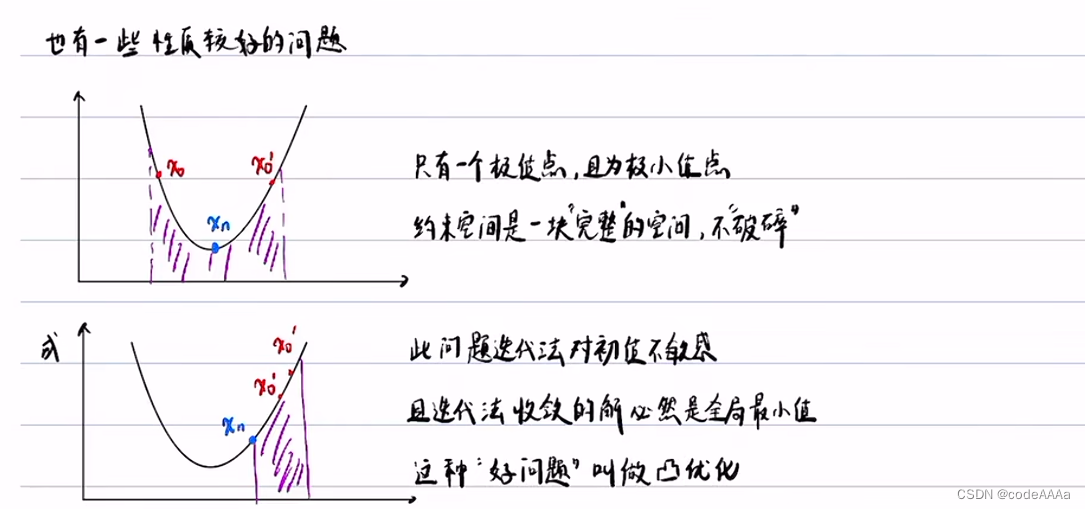 也有一些性质较好的问题
x₀
x₀'
xₙ
只有一个极值点,且为极小值点
约束空间是一块"完整"的空间,不"破碎"
或
x₀'
x₀'
xₙ
此问题迭代法对初值不敏感
且迭代法收敛的解必然是全局最小值
这种"好问题"叫做凸优化
CSDN @codeAAAa